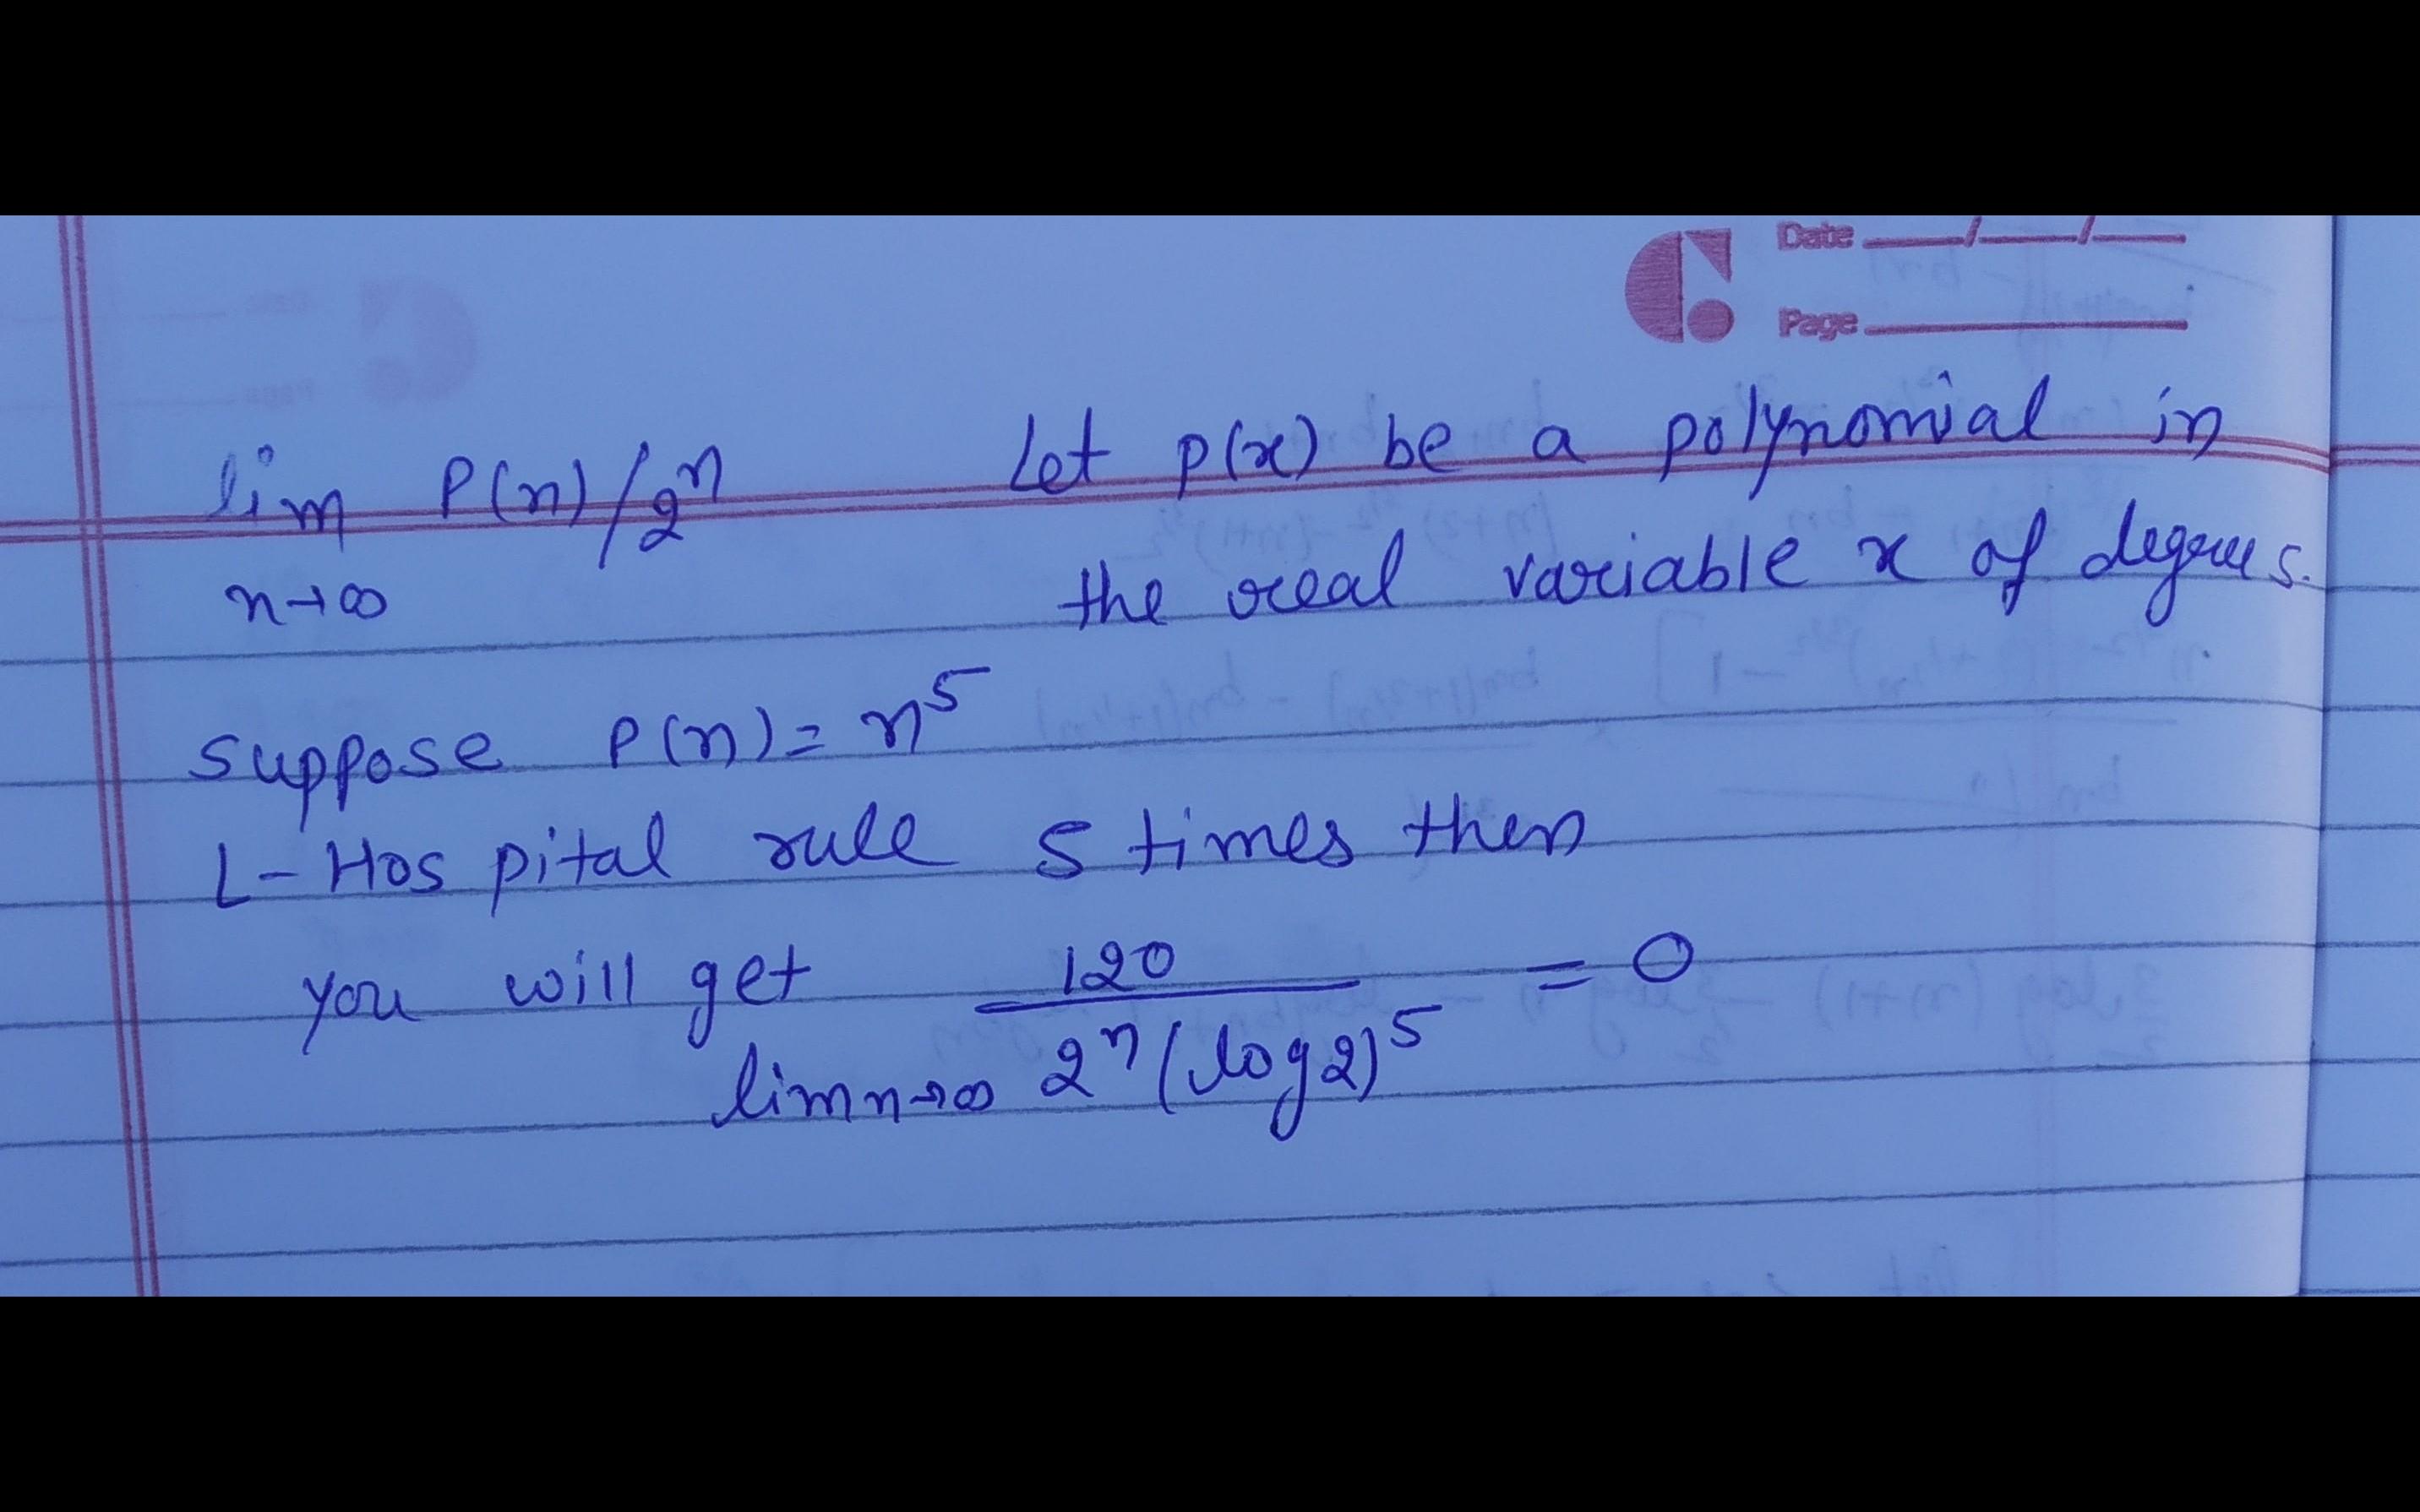 Date __/__/__
Page ______
lim P(n)/2ⁿ
n→∞
Let p(x) be a polynomial in
the real variable x of degree 5.
Suppose P(n) = n⁵
L-Hospital rule 5 times then
you will get 120 / 2ⁿ(log2)⁵ = 0
lim n→∞